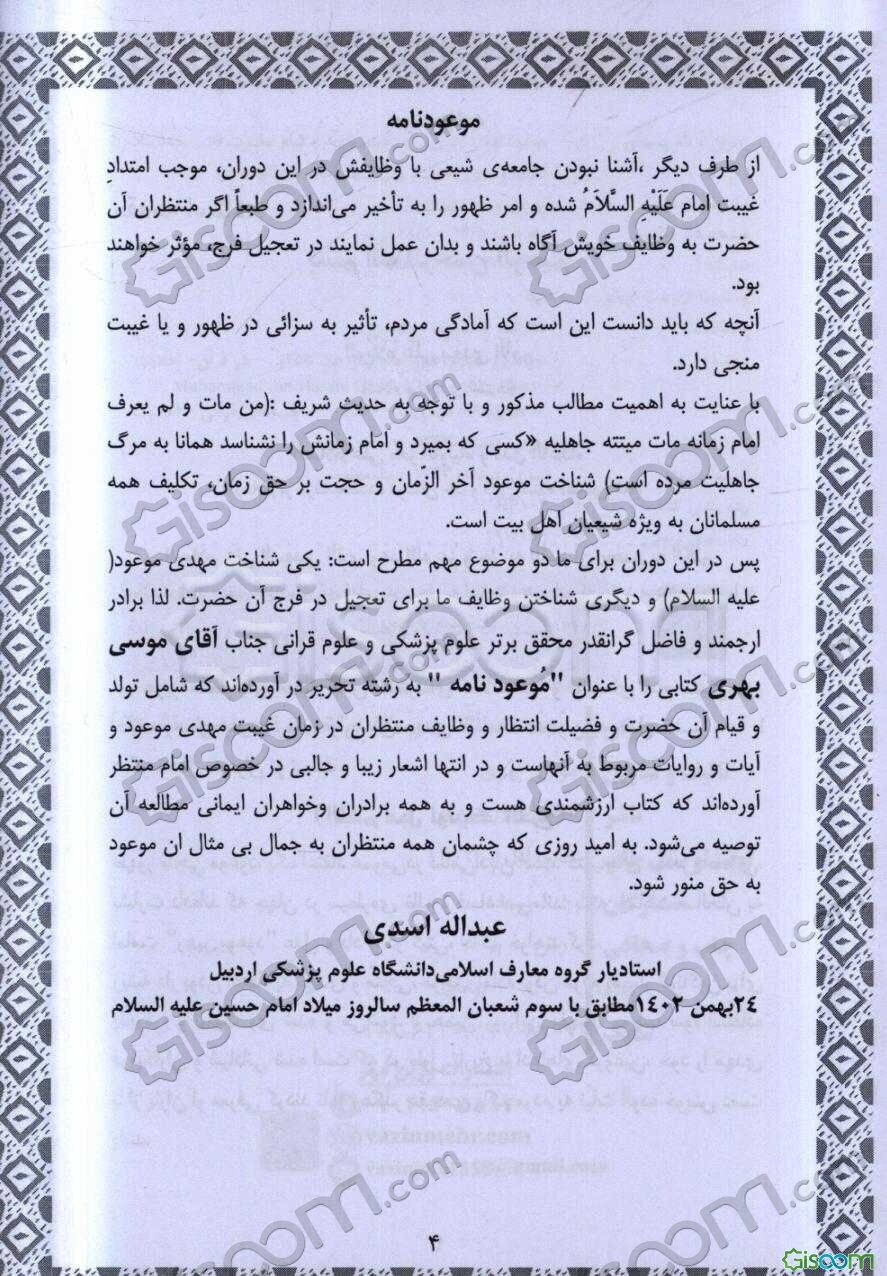 موعودنامه
از طرف دیگر ،آشنا نبودن جامعه‌ی شیعی با وظایفش در این دوران، موجب امتدادِ
غیبت امام عَلَیْه السَّلاَمُ شده و امر ظهور را به تأخیر می‌اندازد و طبعاً اگر منتظران آن
حضرت به وظایف خویش آگاه باشند و بدان عمل نمایند در تعجیل فرج، مؤثر خواهند
بود.
آنچه که باید دانست این است که آمادگی مردم، تأثیر به سزائی در ظهور و یا غیبت
منجی دارد.
با عنایت به اهمیت مطالب مذکور و با توجه به حدیث شریف :(من مات و لم یعرف
امام زمانه مات میتته جاهلیه «کسی که بمیرد و امام زمانش را نشناسد همانا به مرگ
جاهلیت مرده است) شناخت موعود آخر الزّمان و حجت بر حق زمان، تکلیف همه
مسلمانان به ویژه شیعیان اهل بیت است.
پس در این دوران برای ما دو موضوع مهم مطرح است: یکی شناخت مهدی موعود(
علیه السلام) و دیگری شناختن وظایف ما برای تعجیل در فرج آن حضرت. لذا برادر
ارجمند و فاضل گرانقدر محقق برتر علوم پزشکی و علوم قرانی جناب آقای موسی
بهری کتابی را با عنوان "مُوعود نامه " به رشته تحریر در آورده‌اند که شامل تولد
و قیام آن حضرت و فضیلت انتظار و وظایف منتظران در زمان غیبت مهدی موعود و
آیات و روایات مربوط به آنهاست و در انتها اشعار زیبا و جالبی در خصوص امام منتظر
آورده‌اند که کتاب ارزشمندی هست و به همه برادران وخواهران ایمانی مطالعه آن
توصیه می‌شود. به امید روزی که چشمان همه منتظران به جمال بی مثال ان موعود
به حق منور شود.
عبداله اسدی
استادیار گروه معارف اسلامی‌دانشگاه علوم پزشکی اردبیل
۲۴بهمن ۱۴۰۲مطابق با سوم شعبان المعظم سالروز میلاد امام حسین علیه السلام
۴
Giscoom.com